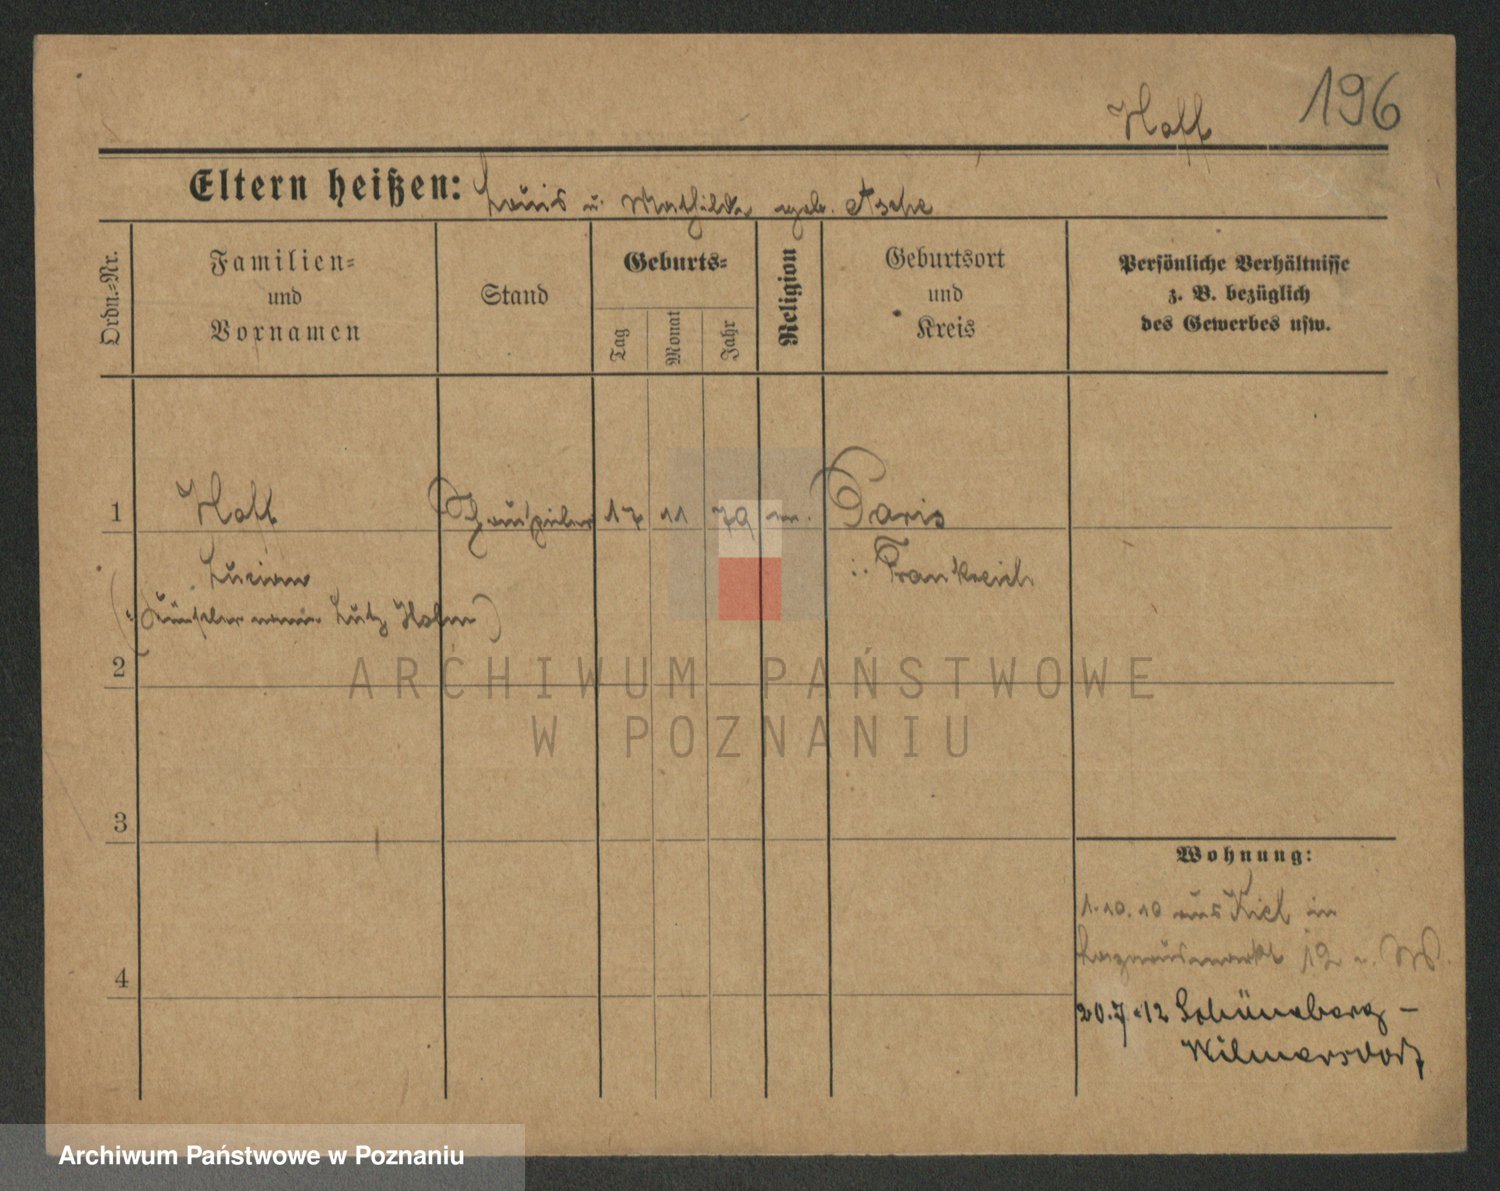 196
Hoff
Eltern heißen: Louis u. Mathilde geb. Asche
Ordn.=Nr.
Familien=
und
Vornamen
Stand
Geburts=
Tag
Monat
Jahr
Religion
Geburtsort
und
Kreis
Persönliche Verhältnisse
z. B. bezüglich
des Gewerbes usw.
1 Hoff Schauspieler 17 11 79 Paris
Lucian Frankreich
(Künstlername Lutz Holm)
2
3
4
Wohnung:
1.10.10 aus Kiel in
12
20.7.12 Schöneberg-
Wilmersdorf
ARCHIWUM PAŃSTWOWE
W POZNANIU
Archiwum Państwowe w Poznaniu